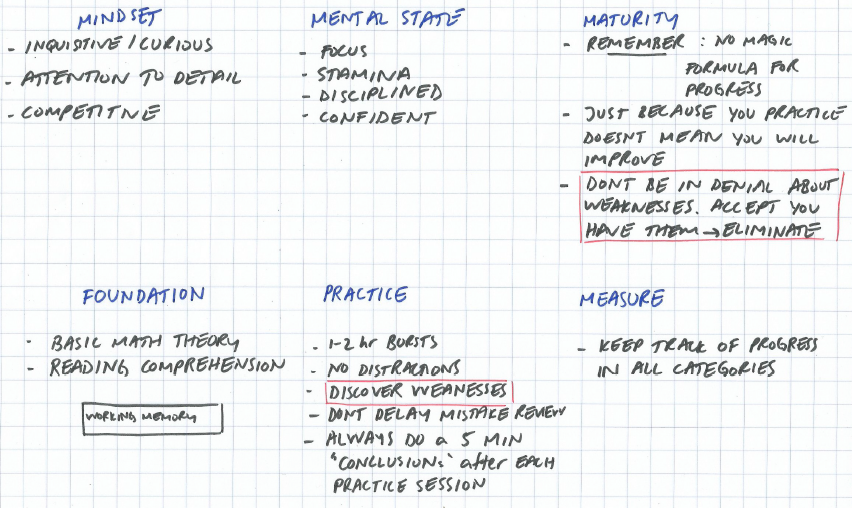 MINDSET
- INQUISTIVE / CURIOUS
- ATTENTION TO DETAIL
- COMPETITIVE
MENTAL STATE
- FOCUS
- STAMINA
- DISCIPLINED
- CONFIDENT
MATURITY
- REMEMBER : NO MAGIC
FORMULA FOR
PROGRESS
- JUST BECAUSE YOU PRACTICE
DOESNT MEAN YOU WILL
IMPROVE
- DONT BE IN DENIAL ABOUT
WEAKNESSES. ACCEPT YOU
HAVE THEM → ELIMINATE
FOUNDATION
- BASIC MATH THEORY
- READING COMPREHENSION
WORKING MEMORY
PRACTICE
- 1-2 hr BURSTS
- NO DISTRACTIONS
- DISCOVER WEANESSES
- DONT DELAY MISTAKE REVIEW
- ALWAYS DO a 5 MIN
"CONCLUSION:" after EACH
PRACTICE SESSION
MEASURE
- KEEP TRACK OF PROGRESS
IN ALL CATEGORIES